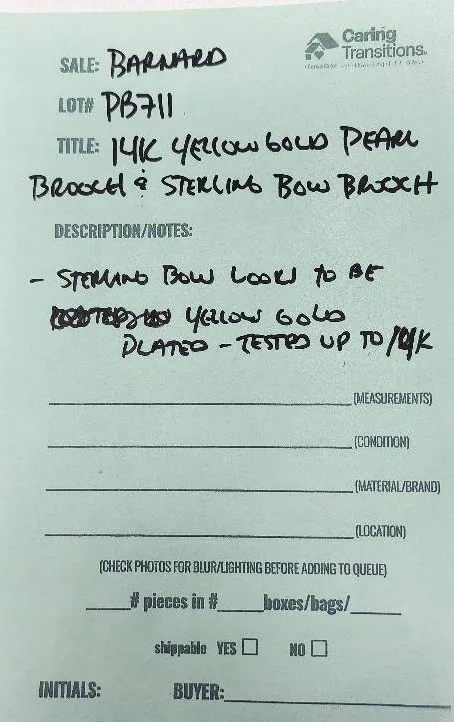 Caring
Transitions®
SALE: BARNARD
LOT# PB711
TITLE: 14K YELLOW GOLD PEARL
BROOCH & STERLING BOW BROOCH
DESCRIPTION/NOTES:
- STERLING BOW LOOKS TO BE
YELLOW GOLD
PLATED - TESTED UP TO K
(MEASUREMENTS)
(CONDITION)
(MATERIAL/BRAND)
(LOCATION)
(CHECK PHOTOS FOR BLUR/LIGHTING BEFORE ADDING TO QUEUE)
# pieces in # boxes/bags/
shippable YES NO
INITIALS: BUYER: